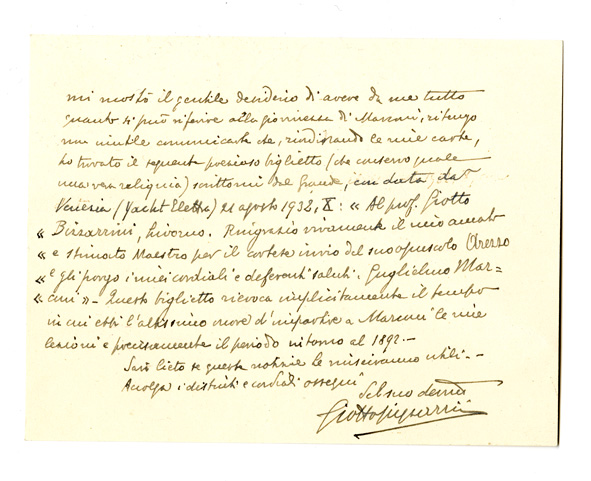 mi mostrò il gentile desiderio di avere da me tutto
quanto si può riferire alla giovinezza di Marconi, ritengo
non inutile comunicarle che, riordinando le mie carte,
ho trovato il seguente prezioso biglietto (che conservo quale
una vera reliquia) scrittomi dal Grande, con data, da
Venezia (Yacht Elettra) 21 agosto 1932, X: « Al prof. Giotto
« Bizzarrini, Livorno. Ringrazio vivamente il mio amato
« e stimato Maestro per il cortese invio del suo opuscolo Arezzo
« e gli porgo i miei cordiali e deferenti saluti. Guglielmo Mar=
« coni » - Questo biglietto rievoca implicitamente il tempo
in cui ebbi l'altissimo onore d'impartire a Marconi le mie
lezioni e precisamente il periodo intorno al 1892.-
Sarò lieto se queste notizie Le riusciranno utili.-
Accolga i distinti e cordiali ossequi
del suo
Giotto Bizzarrini